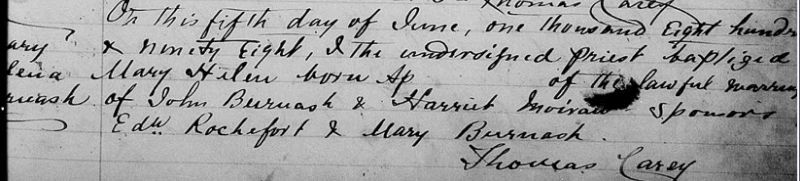 Thomas Carey
On this fifth day of June, one thousand Eight hundr
ary & ninety Eight, I the undersigned priest baptized
lena Mary Helen born Ap of the lawful marriag
rnash of John Burnash & Harriet Sponsors
Edw Rochefort & Mary Burnash.
Thomas Carey